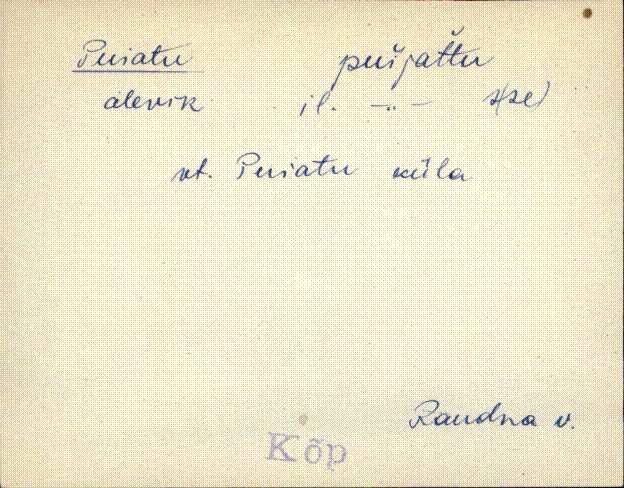 Puiatu puijattu
alevik il. –"– s(se)
vt. Puiatu küla
Raudna v.
Kõp